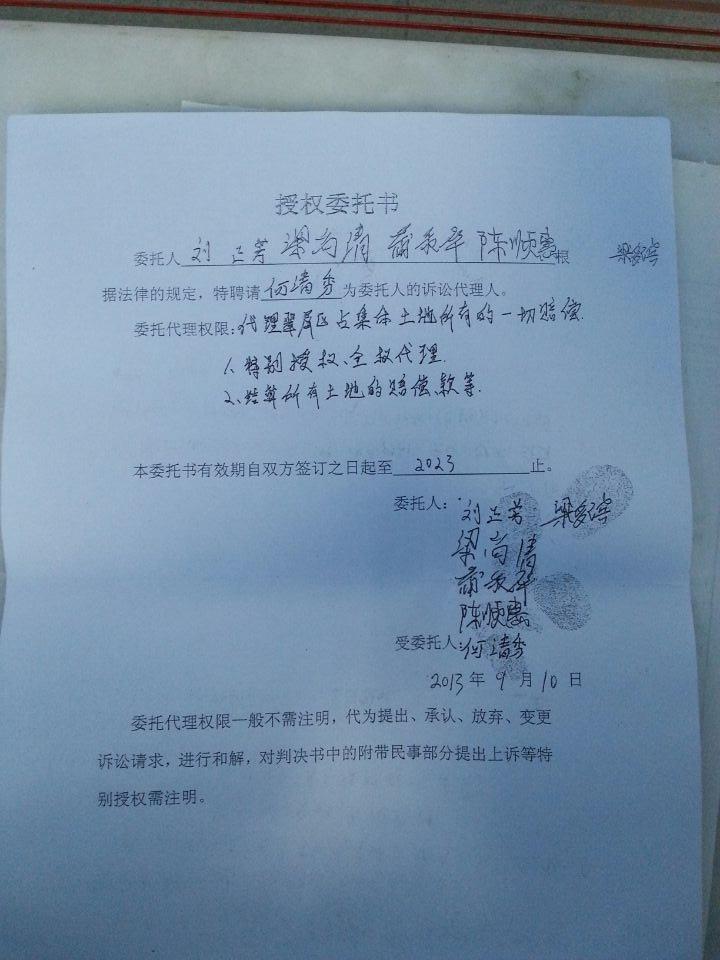 授权委托书
委托人 刘正芳 梁尚清 蒲永华 陈顺惠 根
据法律的规定，特聘请 何清秀 为委托人的诉讼代理人。
委托代理权限：代理翠屏区占集体土地所有的一切赔偿.
1、特别授权、全权代理.
2、结算所有土地的赔偿款等.
本委托书有效期自双方签订之日起至 2023 止。
委托人：刘正芳
梁尚清
蒲永华
陈顺惠
受委托人：何清秀
2013 年 9 月 10 日
委托代理权限一般不需注明，代为提出、承认、放弃、变更
诉讼请求，进行和解，对判决书中的附带民事部分提出上诉等特
别授权需注明。